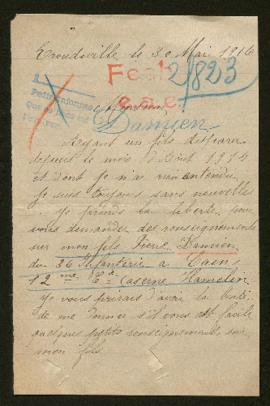 le 30 Mai 1916
Fcal 2/823
e.a.e.
Damien
Ayant un fils disparu
depuis le mois d'Août 1914
et dont je n'ai rien entendu
Je suis toujours sans nouvelle
Je prends la liberté pour
vous demander des renseignements
sur mon fils Pierre Damien
du 36 Infanterie a Caen
12 me Cie Caserne Hamelin
Je vous prierais d'avoir la bonté
de me donner s'il vous est facile
quelques petits renseignements sur
mon fils